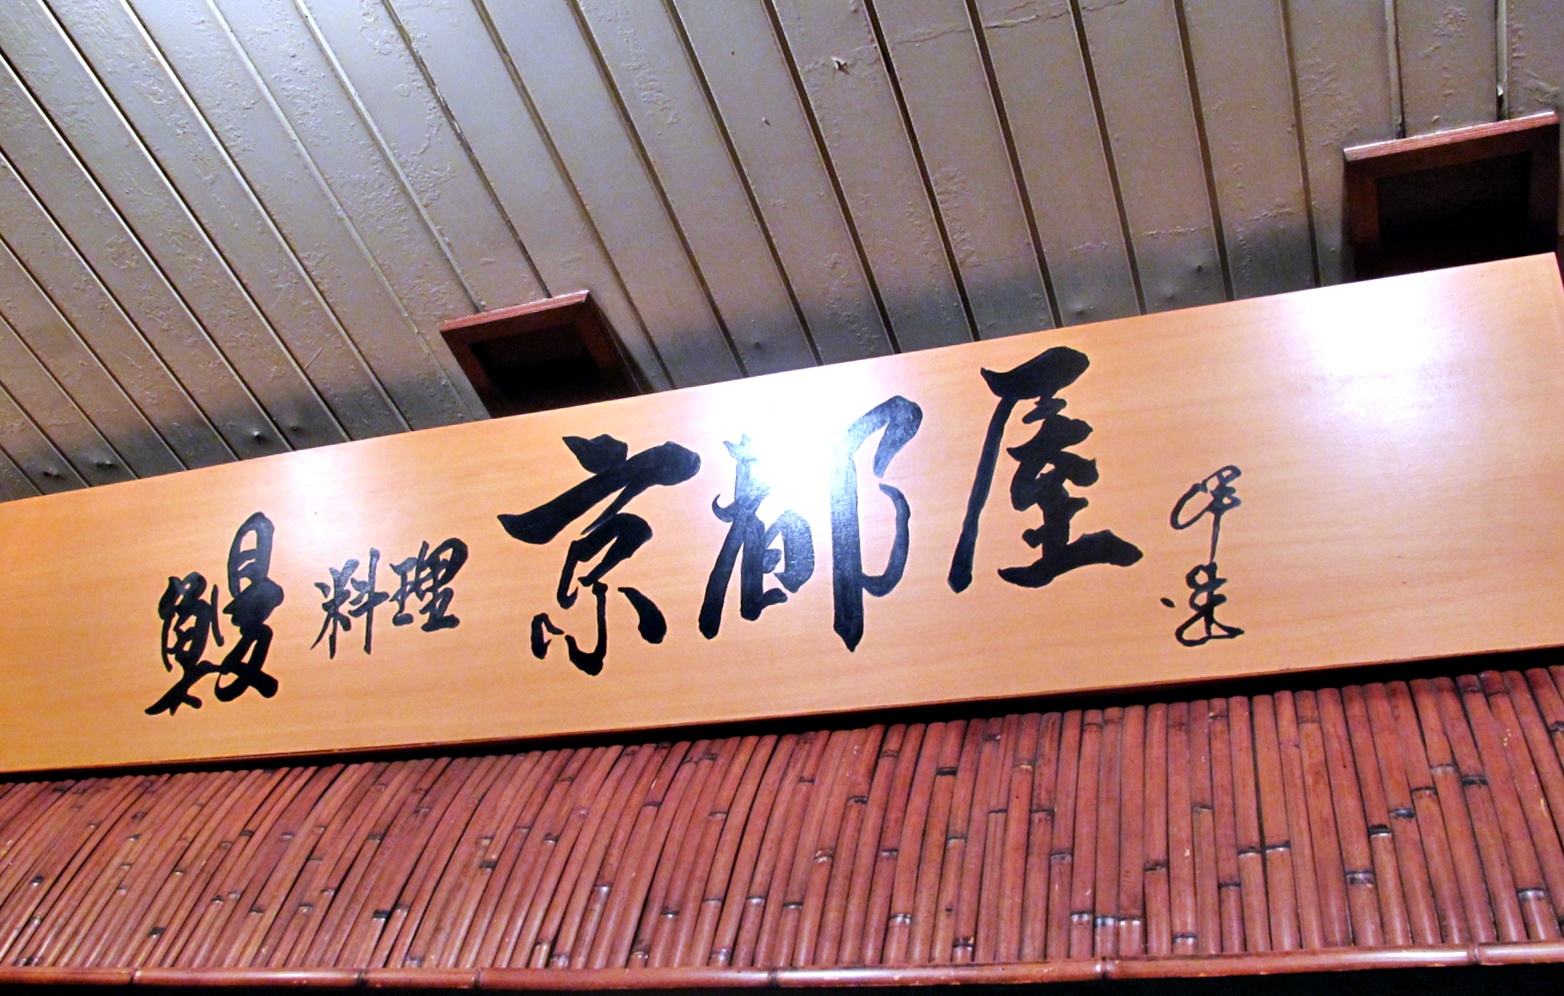 鰻料理 京都屋